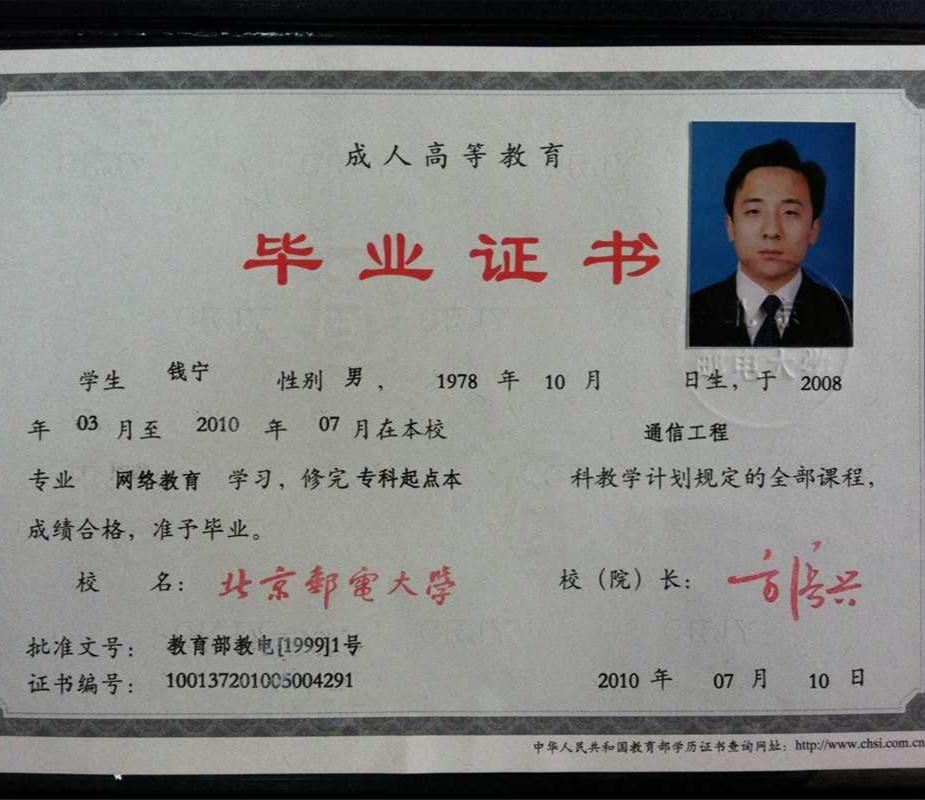 成人高等教育
毕业证书
学生 钱宁 性别 男， 1978 年 10 月 日生，于 2008
年 03 月至 2010 年 07 月在本校 通信工程
专业 网络教育 学习，修完 专科起点本 科教学计划规定的全部课程，
成绩合格，准予毕业。
校 名： 北京邮电大学 校（院）长： 方滨兴
批准文号： 教育部教电[1999]1号
证书编号： 100137201005004291 2010 年 07 月 10 日
中华人民共和国教育部学历证书查询网址：http://www.chsi.com.cn